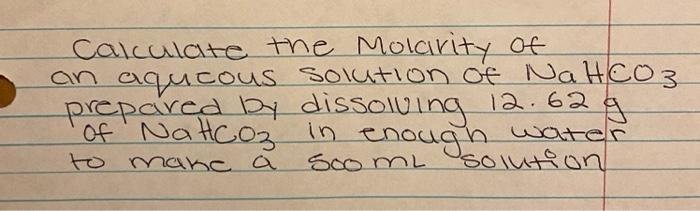 Calculate the Molarity of
an aqueous solution of NaHCO3
prepared by dissolving 12.62 g
of NaHCO3 in enough water
to make a 500 mL solution